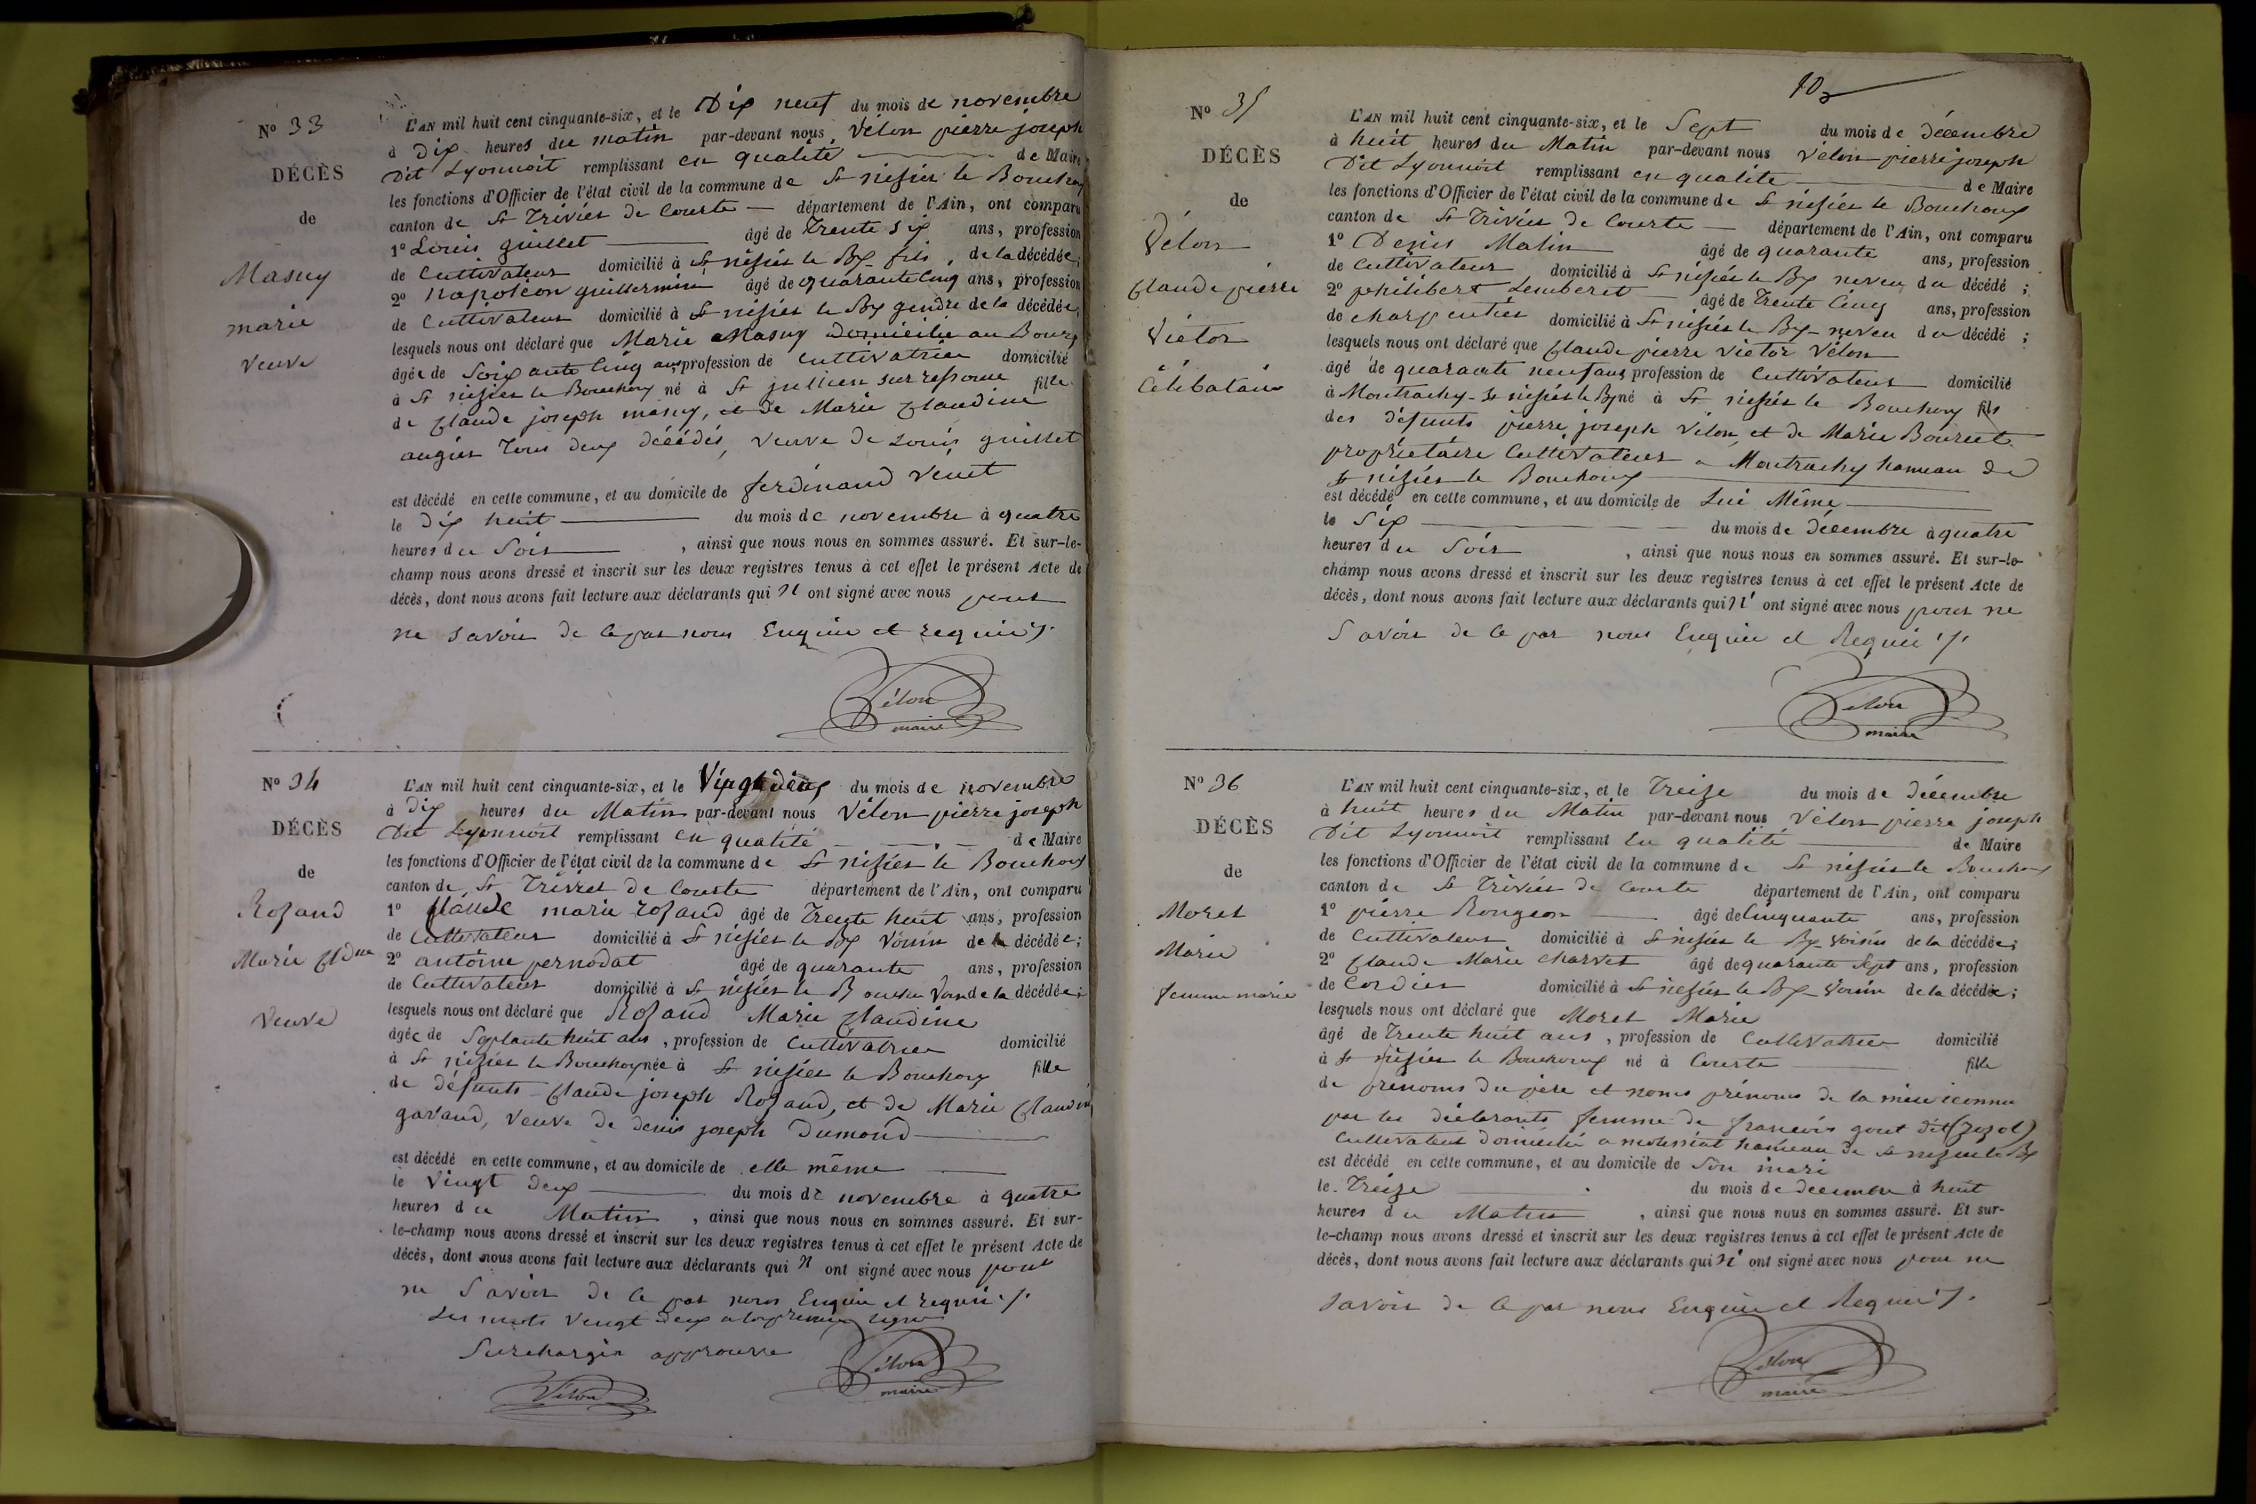 N° 33
DÉCÈS
de
Masuy
marie
veuve
L'AN mil huit cent cinquante-six, et le Dix neuf du mois de novembre
à Dix heures du matin par-devant nous Vélon pierre joseph
Dit Lyonnoit remplissant en qualité de Maire
les fonctions d'Officier de l'état civil de la commune de St nisier le Bouchoux
canton de St Trivier de Courte département de l'Ain, ont comparu
1° Louis guillet âgé de Trente Six ans, profession
de Cultivateur domicilié à St nisier le Bx fils, de la décédée;
2° napoléon guillermin âgé de quarante Cinq ans, profession
de Cultivateur domicilié à St nisier le Bx gendre de la décédée;
lesquels nous ont déclaré que Marie Masuy Domiciliée au Bourg
âgée de Soixante Cinq ans profession de Cultivatrice domicilié
à St nisier le Bouchoux né à St jullien sur ressouze fille
de Claude joseph masuy, et de Marie Claudine
augier Tous deux décédés, veuve de Louis guillet
est décédé en cette commune, et au domicile de ferdinand Venet
le dix huit du mois de novembre à quatre
heures du Soir , ainsi que nous nous en sommes assuré. Et sur-le-
champ nous avons dressé et inscrit sur les deux registres tenus à cet effet le présent Acte de
décès, dont nous avons fait lecture aux déclarants qui N ont signé avec nous pour
ne Savoir de Ce par nous Enquie et requis ./.
Vélon
maire
N° 34
DÉCÈS
de
Rozand
Marie Cldne
veuve
L'AN mil huit cent cinquante-six, et le Vingt deux du mois de novembre
à Dix heures du Matin par-devant nous Vélon pierre joseph
Dit Lyonnoit remplissant en qualité de Maire
les fonctions d'Officier de l'état civil de la commune de St nisier le Bouchoux
canton de St Trivier de Courte département de l'Ain, ont comparu
1° Claude marie rozand âgé de Trente huit ans, profession
de Cultivateur domicilié à St nisier le Bx Voisin de la décédée;
2° antoine pernodat âgé de quarante ans, profession
de Cultivateur domicilié à St nisier le Bouchx Voisin de la décédée;
lesquels nous ont déclaré que Rozand Marie Claudine
âgée de Soptante huit ans, profession de Cultivatrice domicilié
à St nisier le Bouchoux née à St nisier le Bouchoux fille
de défunts Claude joseph Rozand, et de Marie Claudine
gavand, veuve de denis joseph Dumond
est décédé en cette commune, et au domicile de elle même
le Vingt deux du mois de novembre à quatre
heures du Matin , ainsi que nous nous en sommes assuré. Et sur-
le-champ nous avons dressé et inscrit sur les deux registres tenus à cet effet le présent Acte de
décès, dont nous avons fait lecture aux déclarants qui N ont signé avec nous pour
ne Savoir de Ce par nous Enquie et requis ./.
Les mots Vingt deux a la premiere ligne
Surchargés approuvés
Vélon
maire
Vélon
103
N° 35
DÉCÈS
de
Vélon
Claude pierre
Victor
Célibataire
L'AN mil huit cent cinquante-six, et le Sept du mois de décembre
à huit heures du Matin par-devant nous Vélon pierre joseph
Dit Lyonnoit remplissant en qualité de Maire
les fonctions d'Officier de l'état civil de la commune de St nisier le Bouchoux
canton de St Trivier de Courte département de l'Ain, ont comparu
1° Denis Matin âgé de quarante ans, profession
de Cultivateur domicilié à St nisier le Bx neveu du décédé ;
2° philibert Lemberet âgé de Trente Cinq ans, profession
de charpentier domicilié à St nisier le Bx neveu du décédé ;
lesquels nous ont déclaré que Claude pierre victor Vélon
âgé de quarante neuf ans profession de Cultivateur domicilié
à Montrachy St nisier le Bx né à St nisier le Bouchoux fils
des défunts pierre joseph Vélon, et de Marie Bourcet
propriétaire Cultivateur a Montrachy hameau de
St nisier le Bouchoux
est décédé en cette commune, et au domicile de Lui Même
le Six du mois de décembre à quatre
heures du Soir , ainsi que nous nous en sommes assuré. Et sur-le-
champ nous avons dressé et inscrit sur les deux registres tenus à cet effet le présent Acte de
décès, dont nous avons fait lecture aux déclarants qui N' ont signé avec nous pour ne
Savoir de Ce par nous Enquie et Requis ./.
Vélon
maire
N° 36
DÉCÈS
de
Moret
Marie
femme marie
L'AN mil huit cent cinquante-six, et le Treize du mois de décembre
à huit heures du Matin par-devant nous Vélon pierre joseph
Dit Lyonnoit remplissant en qualité de Maire
les fonctions d'Officier de l'état civil de la commune de St nisier le Bouchoux
canton de St Trivier de Courte département de l'Ain, ont comparu
1° pierre Rongeon âgé de Cinquante ans, profession
de Cultivateur domicilié à St nisier le Bx voisin de la décédée;
2° Claude Marie Charvet âgé de quarante Sept ans, profession
de Cordier domicilié à St nisier le Bx Voisin de la décédée;
lesquels nous ont déclaré que Moret Marie
âgé de Trente huit ans, profession de Cultivatrice domicilié
à St nisier le Bouchoux né à Courte fille
de prénoms du père et noms prénoms de la mère iconnu
par les déclarants femme de francois gout dit (zozot)
Cultivateur Domicilié a hameau de St nizier le Bx
est décédé en cette commune, et au domicile de Son mari
le Treize du mois de decembre à huit
heures du Matin , ainsi que nous nous en sommes assuré. Et sur-
le-champ nous avons dressé et inscrit sur les deux registres tenus à cet effet le présent Acte de
décès, dont nous avons fait lecture aux déclarants qui N' ont signé avec nous pour ne
Savoir de Ce par nous Enquie et Requis ./.
Vélon
maire